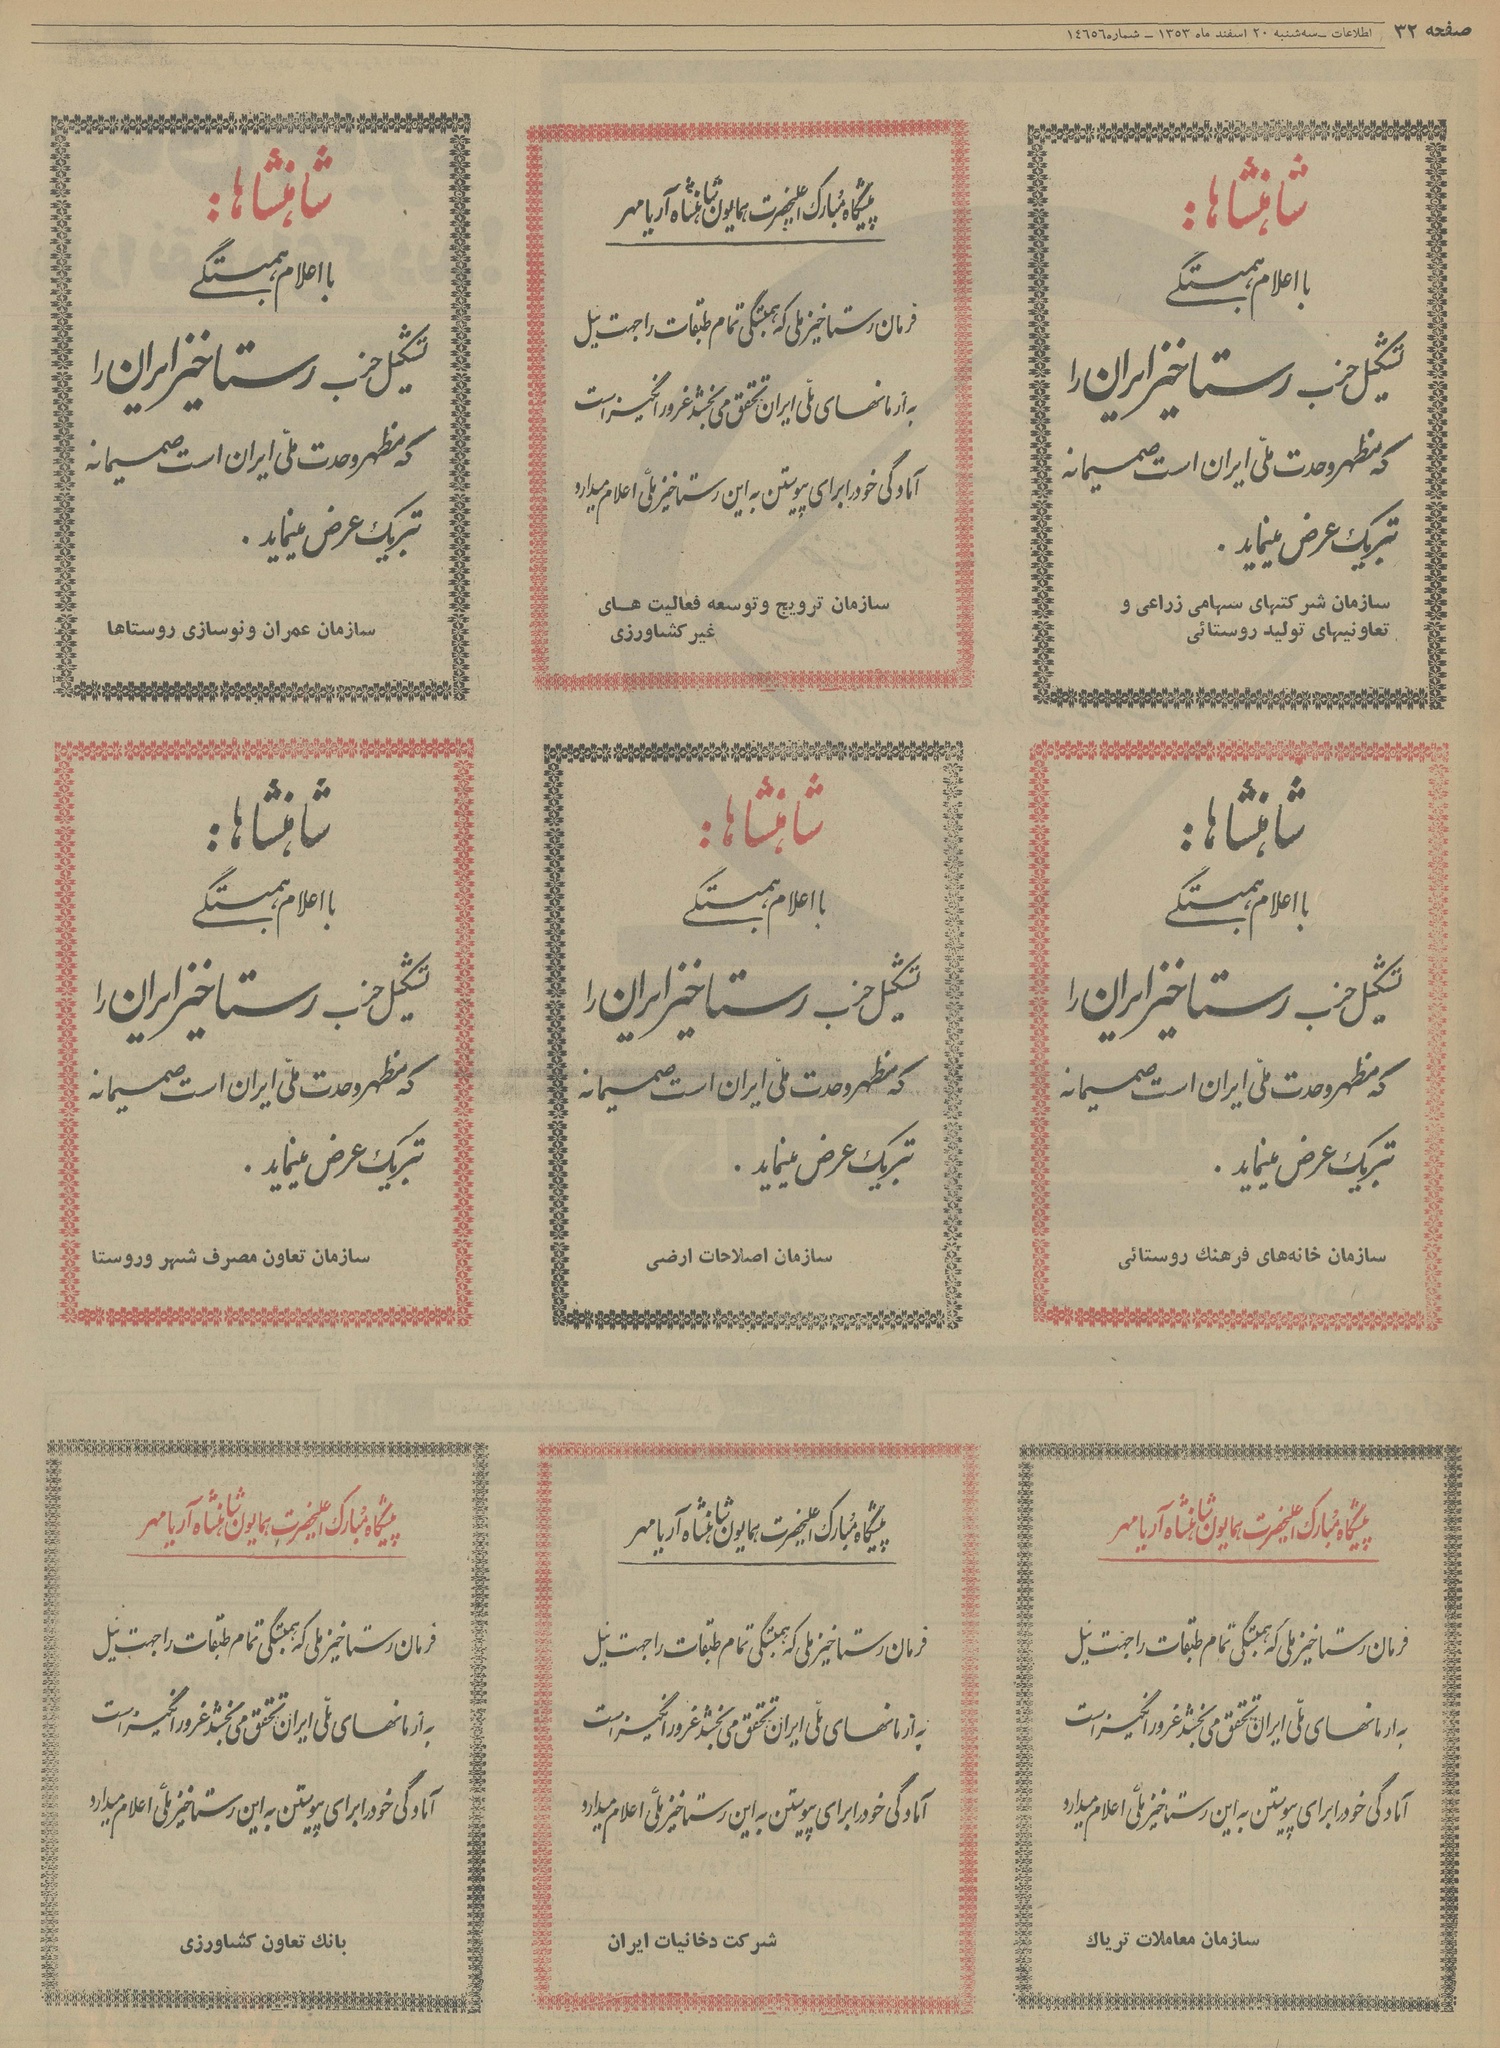 صفحه ۳۲
اطلاعات ــ سه‌شنبه ۲۰ اسفند ماه ۱۳۵۳ ــ شماره ۱٤٦٥٦
شاهنشاها:
با اعلام همبستگی
تشکیل حزب رستاخیز ایران را
که مظهر وحدت ملّی ایران است صمیمانه
تبریک عرض مینماید .
سازمان شرکتهای سهامی زراعی و
تعاونیهای تولید روستائی
پیشگاه مبارک اعلیحضرت همایون شاهنشاه آریامهر
فرمان رستاخیز ملی که همبستگی تمام طبقات را جهت نیل
به آرمانهای ملّی ایران تحقق می‌بخشد غرورانگیز است
آمادگی خود را برای پیوستن به این رستاخیز ملّی اعلام میدارد
سازمان ترویج و توسعه فعالیت هـای
غیر کشاورزی
شاهنشاها:
با اعلام همبستگی
تشکیل حزب رستاخیز ایران را
که مظهر وحدت ملّی ایران است صمیمانه
تبریک عرض مینماید .
سازمان عمران و نوسازی روستاها
شاهنشاها:
با اعلام همبستگی
تشکیل حزب رستاخیز ایران را
که مظهر وحدت ملّی ایران است صمیمانه
تبریک عرض مینماید .
سازمان خانه‌های فرهنك روستائی
شاهنشاها:
با اعلام همبستگی
تشکیل حزب رستاخیز ایران را
که مظهر وحدت ملّی ایران است صمیمانه
تبریک عرض مینماید .
سازمان اصلاحات ارضی
شاهنشاها:
با اعلام همبستگی
تشکیل حزب رستاخیز ایران را
که مظهر وحدت ملّی ایران است صمیمانه
تبریک عرض مینماید .
سازمان تعاون مصرف شهر و روستا
پیشگاه مبارک اعلیحضرت همایون شاهنشاه آریامهر
فرمان رستاخیز ملی که همبستگی تمام طبقات را جهت نیل
به آرمانهای ملّی ایران تحقق می‌بخشد غرورانگیز است
آمادگی خود را برای پیوستن به این رستاخیز ملّی اعلام میدارد
سازمان معاملات تریاك
پیشگاه مبارک اعلیحضرت همایون شاهنشاه آریامهر
فرمان رستاخیز ملی که همبستگی تمام طبقات را جهت نیل
به آرمانهای ملّی ایران تحقق می‌بخشد غرورانگیز است
آمادگی خود را برای پیوستن به این رستاخیز ملّی اعلام میدارد
شرکت دخانیات ایران
پیشگاه مبارک اعلیحضرت همایون شاهنشاه آریامهر
فرمان رستاخیز ملی که همبستگی تمام طبقات را جهت نیل
به آرمانهای ملّی ایران تحقق می‌بخشد غرورانگیز است
آمادگی خود را برای پیوستن به این رستاخیز ملّی اعلام میدارد
بانك تعاون کشاورزی